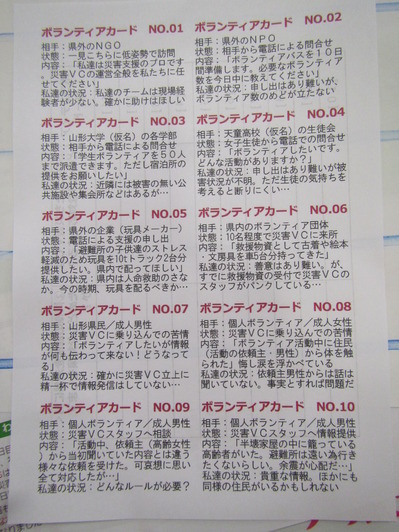 ボランティアカード NO.01
相手：県外のNGO
状態：一見こちらに低姿勢で訪問
内容：「私達は災害支援のプロです
。災害VCの運営全般を私たちに任
せてください」
私達の状況：私達のチームは現場経
験者が少ない。確かに助けはほしい
ボランティアカード NO.02
相手：県外のNPO
状態：相手から電話による問合せ
内容：「ボランティアバスを１０日
間準備します。必要なボランティア
数を今日中に教えてください」
私達の状況：申し出はあり難いが、
ボランティア数のめどが立たない
ボランティアカード NO.03
相手：山形大学（仮名）の各学部
状態：相手から電話による問合せ
内容：「学生ボランティアを５０人
まで派遣できます。ただし宿泊所の
提供をお願いしたい」
私達の状況：近隣には被害の無い公
共施設や集会所などはあるが…
ボランティアカード NO.04
相手：天童高校（仮名）の生徒会
状態：女子生徒から電話での問合せ
内容：「ボランティアしたいです。
どんな活動がありますか？」
私達の状況：申し出はあり難いが被
害状況が不明。ただ生徒の気持ちを
考えると断りにくい…
ボランティアカード NO.05
相手：県外の企業（玩具メーカー）
状態：電話による支援の申し出
内容：「避難所の子供達のストレス
軽減のため玩具を10tトラック2台分
提供したい。県内で配ってほしい」
私達の状況：県内は人命救助のさな
か。今の時期、玩具を配るべきか…
ボランティアカード NO.06
相手：県内のボランティア団体
状態：10名程度で災害VCに来所
内容：「救援物資として古着や絵本
・文房具を車5台分持ってきた」
私達の状況：善意はあり難い。が、
すでに救援物資の受付で災害VCの
スタッフがパンクしている…
ボランティアカード NO.07
相手：山形県民／成人男性
状態：災害VCに乗り込んでの苦情
内容：「ボランティアしたいが情報
が何も伝わって来ない！どうなって
る」
私達の状況：確かに災害VC立上に
精一杯で情報発信はしていない…
ボランティアカード NO.08
相手：個人ボランティア／成人女性
状態：災害VCに乗り込んでの苦情
内容：「ボランティア活動中に住民
（活動の依頼主・男性）から体を触
られた」悔し涙を浮かべている
私達の状況：依頼主男性からは話は
聞いていない。事実とすれば問題だ
ボランティアカード NO.09
相手：個人ボランティア／成人男性
状態：災害VCスタッフへ相談
内容：「活動中、依頼主（高齢女性
）から当初聞いていた内容とは違う
様々な依頼を受けた。可哀想に思い
全て対応したが…」
私達の状況：どんなルールが必要？
ボランティアカード NO.10
相手：個人ボランティア／成人男性
状態：災害VCスタッフへ情報提供
内容：「半壊家屋の中に籠っている
高齢者がいた。避難所は遠い為行き
たくないらしい。余震が心配だ…」
私達の状況：貴重な情報。ほかにも
同様の住民がいるかもしれない